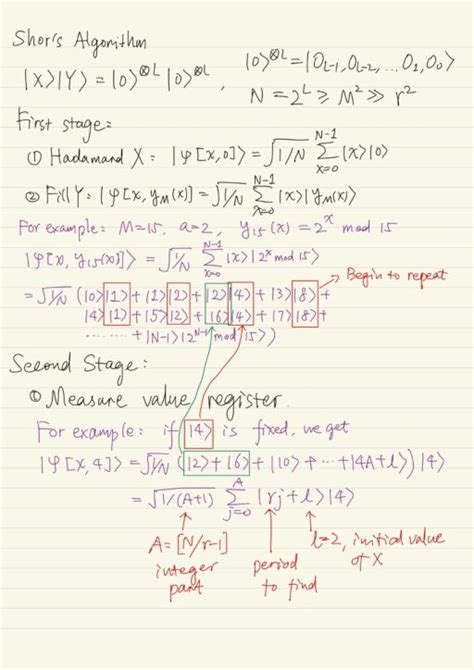 Shor's Algorithm
|X>|Y> = |0>^{⊗L} |0>^{⊗L} , |0>^{⊗L} = |0_{L-1}, 0_{L-2}, ... 0_1, 0_0>
N = 2^L ≥ M^2 ≫ r^2
First stage:
① Hadamand X: |φ[x,0]> = √1/N Σ_{x=0}^{N-1} |x>|0>
② Fill Y: |φ[x, y_M(x)] = √1/N Σ_{x=0}^{N-1} |x>|y_M(x)>
For example: M=15, a=2, y_{15}(x) = 2^x mod 15
|φ[x, y_{15}(x)]> = √1/N Σ_{x=0}^{N-1} |x>|2^x mod 15>
Begin to repeat
= √1/N (|0>|1> + |1>|2> + |2>|4> + |3>|8> +
|4>|1> + |5>|2> + |6>|4> + |7>|8> +
...... + |N-1>|2^{N-1} mod 15>)
Second Stage:
① Measure value register.
For example: if |4> is fixed, we get
|φ[x,4]> = √1/N (|2> + |6> + |10> + ... + |4A+l>) |4>
= √1/(A+1) Σ_{j=0}^{A} |rj + l> |4>
A = [N/r-1]
integer
part
period
to find
l=2, initial value
of X